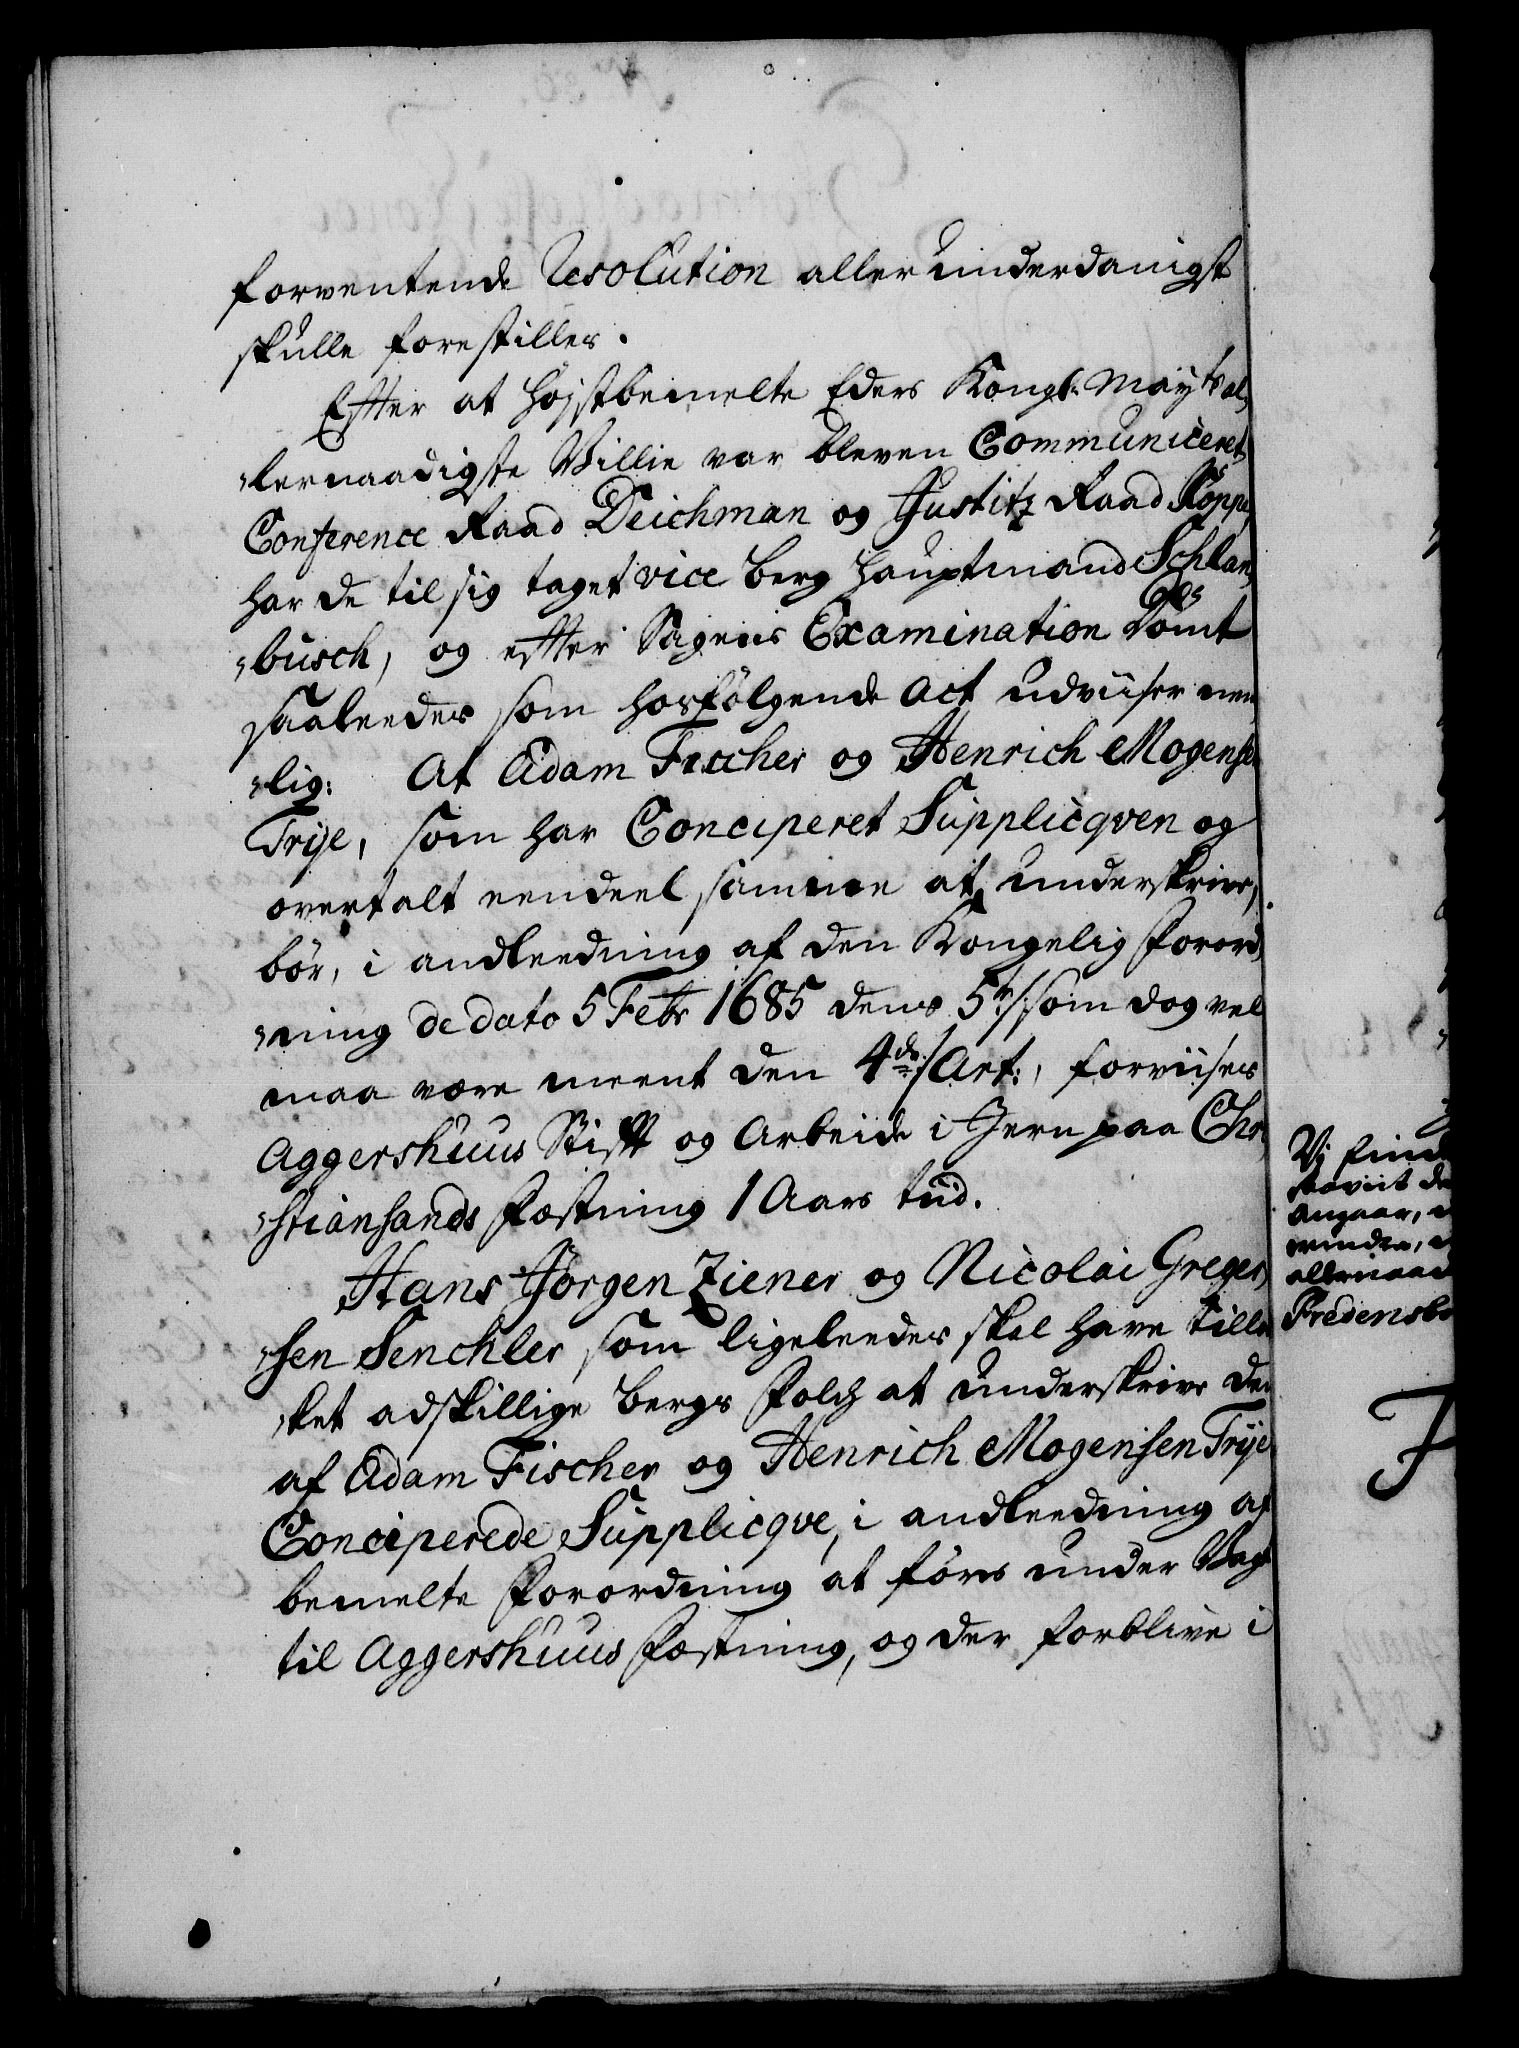 forventende Resolution allerunderdanigst
skulle forestilles.
Effter at højstbemelte Eders Kongl: Mayts al,
„lernaadigste Villie var bleven Communiceret
Conference Raad Deichman og Justitz Raad
har de til sig taget vice berg Hauptmand Schlan,
„busch, og effter Sagens Examination dømt
saaleedes som hosfølgende Act udviiser nem,
„lig: At Adam Fischer og Henrich Mogensen
Trije, som har Conciperet Supplicqven og
overtalt eendeel samme at underskrive,
bør, i andleedning af den Kongelig Forord,
„ning de dato 5 Febr 1685 dens 5te /: som dog vel
maa være meent den 4de :/ Art:, forviises
Aggershuus Stifft og Arbeide i Jern paa Chri,
„stiansands Fæstning 1 Aars tiid.
Hans Jørgen Ziener og Nicolai Greger,
„sen Senchler, som ligeleedes skal have tillo
„ket adskillige bergs Folch at underskrive den
af Adam Fischer og Henrich Mogensen Trije
Conciperede Supplicqve, i andleedning af
bemelte Forordning at føres under Vagt
til Aggershuus Fæstning, og der forblive i
Vi find
angaar,
allernaad
Fredensbo